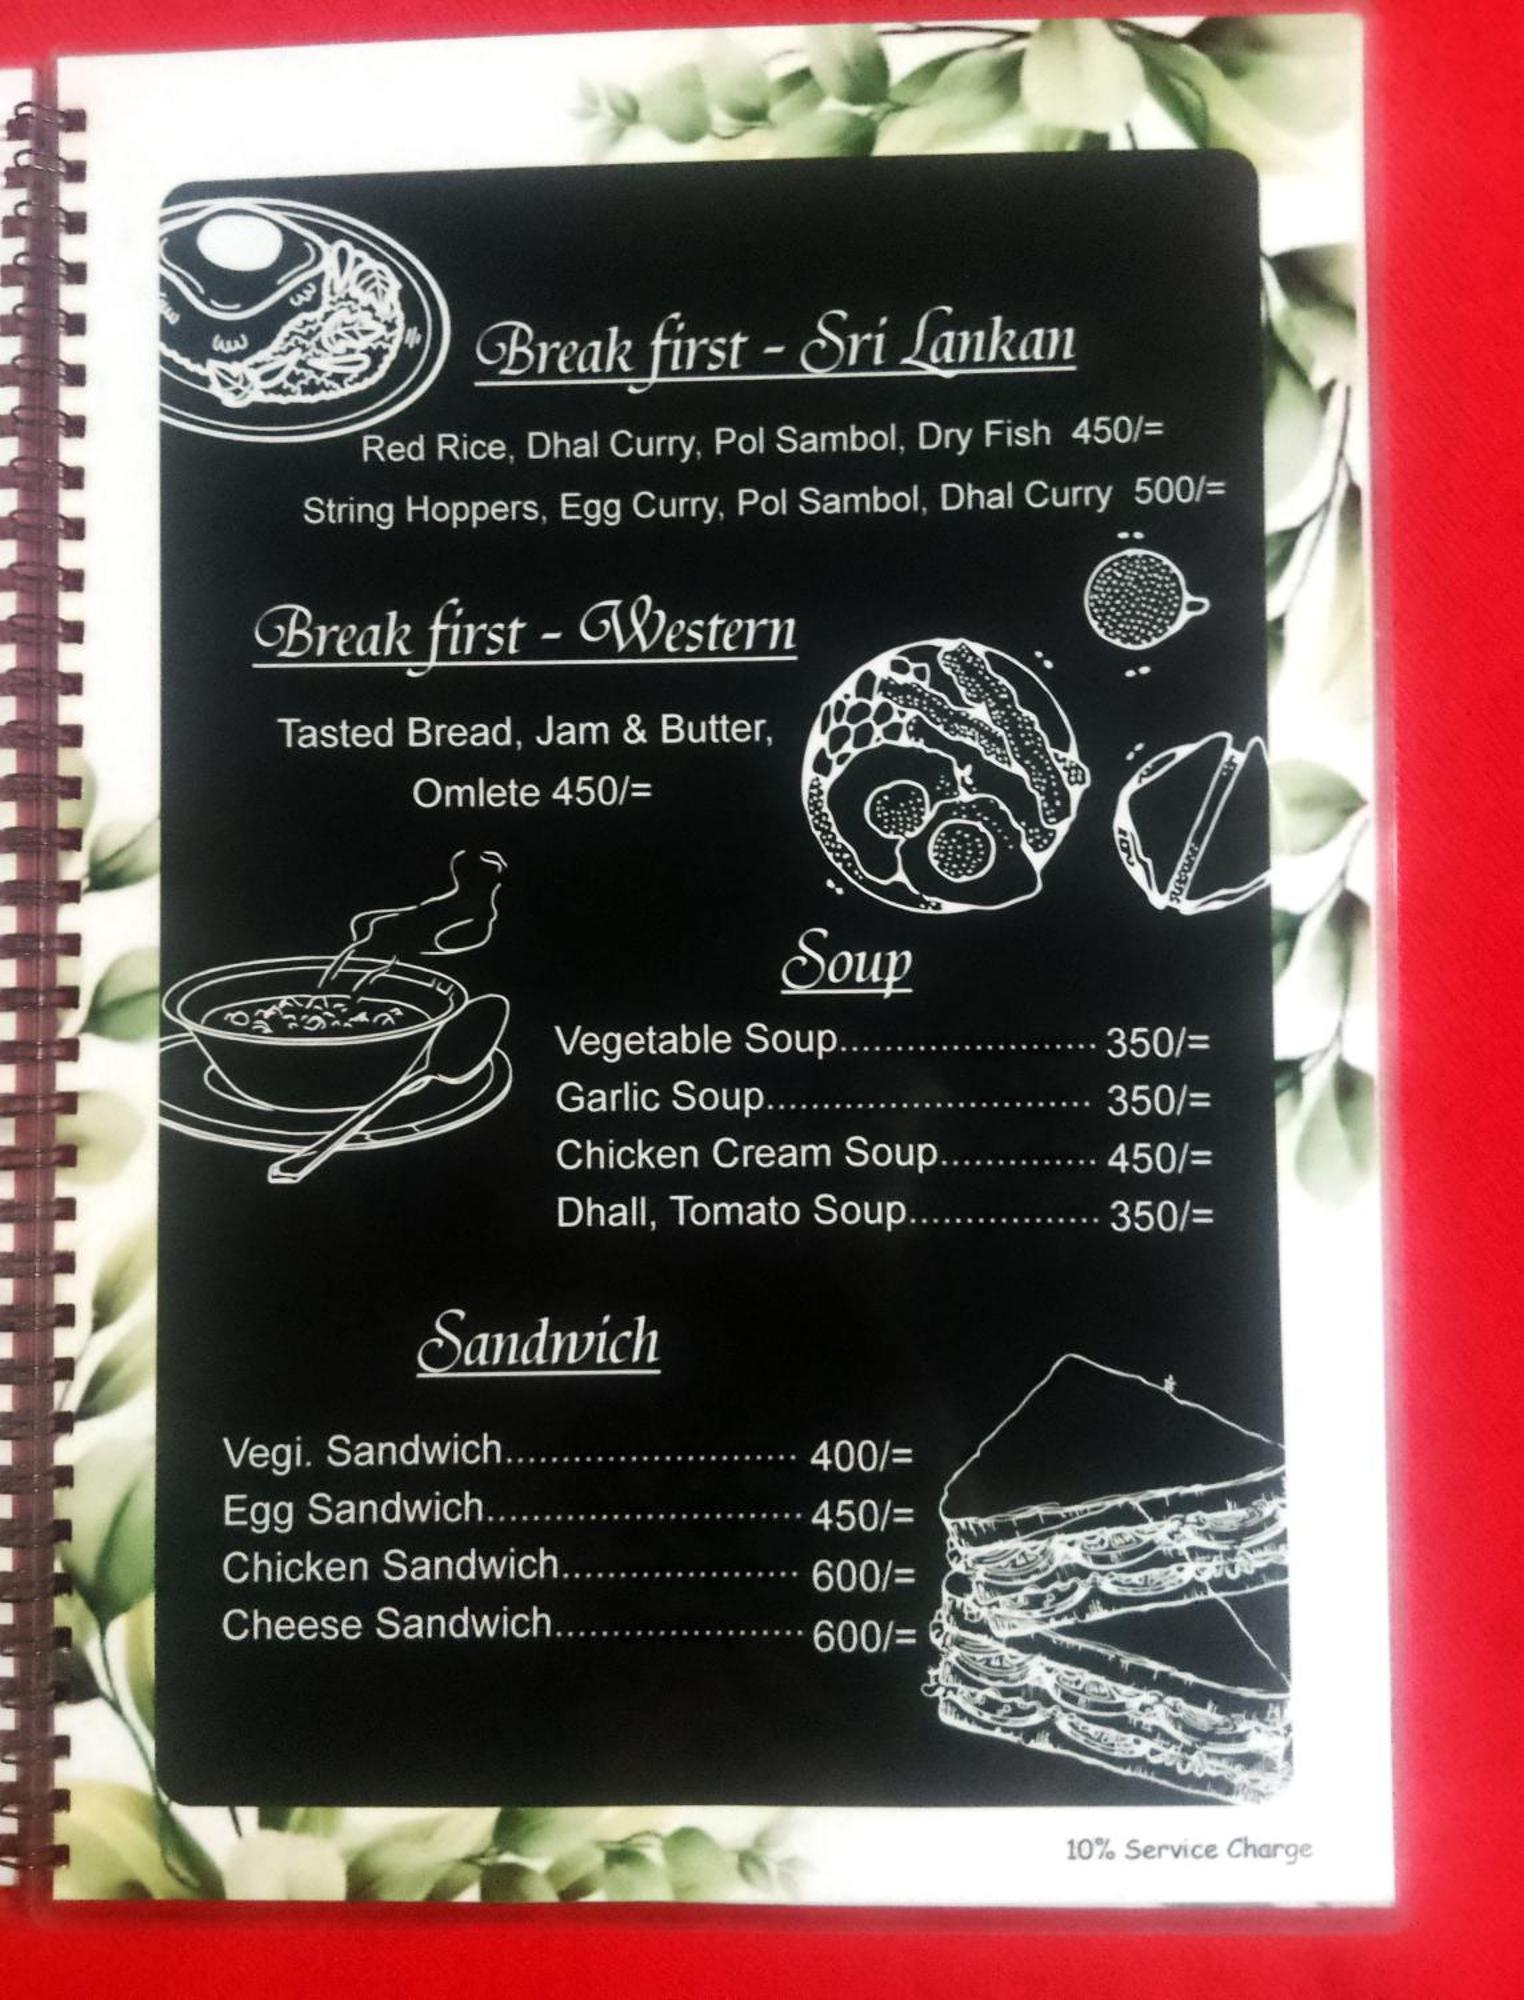 Break first - Sri Lankan
Red Rice, Dhal Curry, Pol Sambol, Dry Fish 450/=
String Hoppers, Egg Curry, Pol Sambol, Dhal Curry 500/=
Break first - Western
Tasted Bread, Jam & Butter,
Omlete 450/=
Soup
Vegetable Soup....................... 350/=
Garlic Soup............................. 350/=
Chicken Cream Soup.............. 450/=
Dhall, Tomato Soup................. 350/=
Sandwich
Vegi. Sandwich.......................... 400/=
Egg Sandwich............................ 450/=
Chicken Sandwich..................... 600/=
Cheese Sandwich...................... 600/=
10% Service Charge